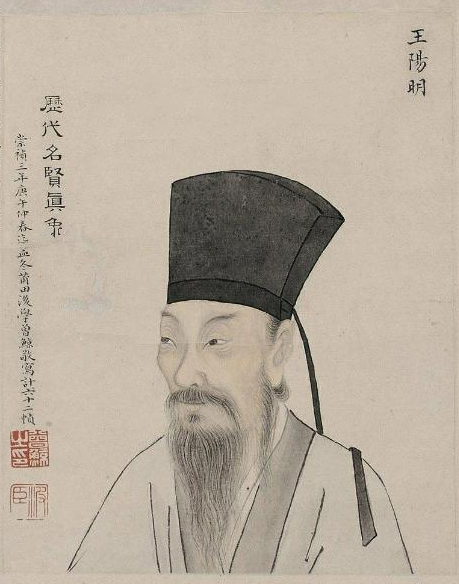 王陽明
歷代名賢眞象
崇禎三年庚午仲春迄孟冬莆田後學曾鯨敬寫計六十二幀
曾鯨之印
波臣